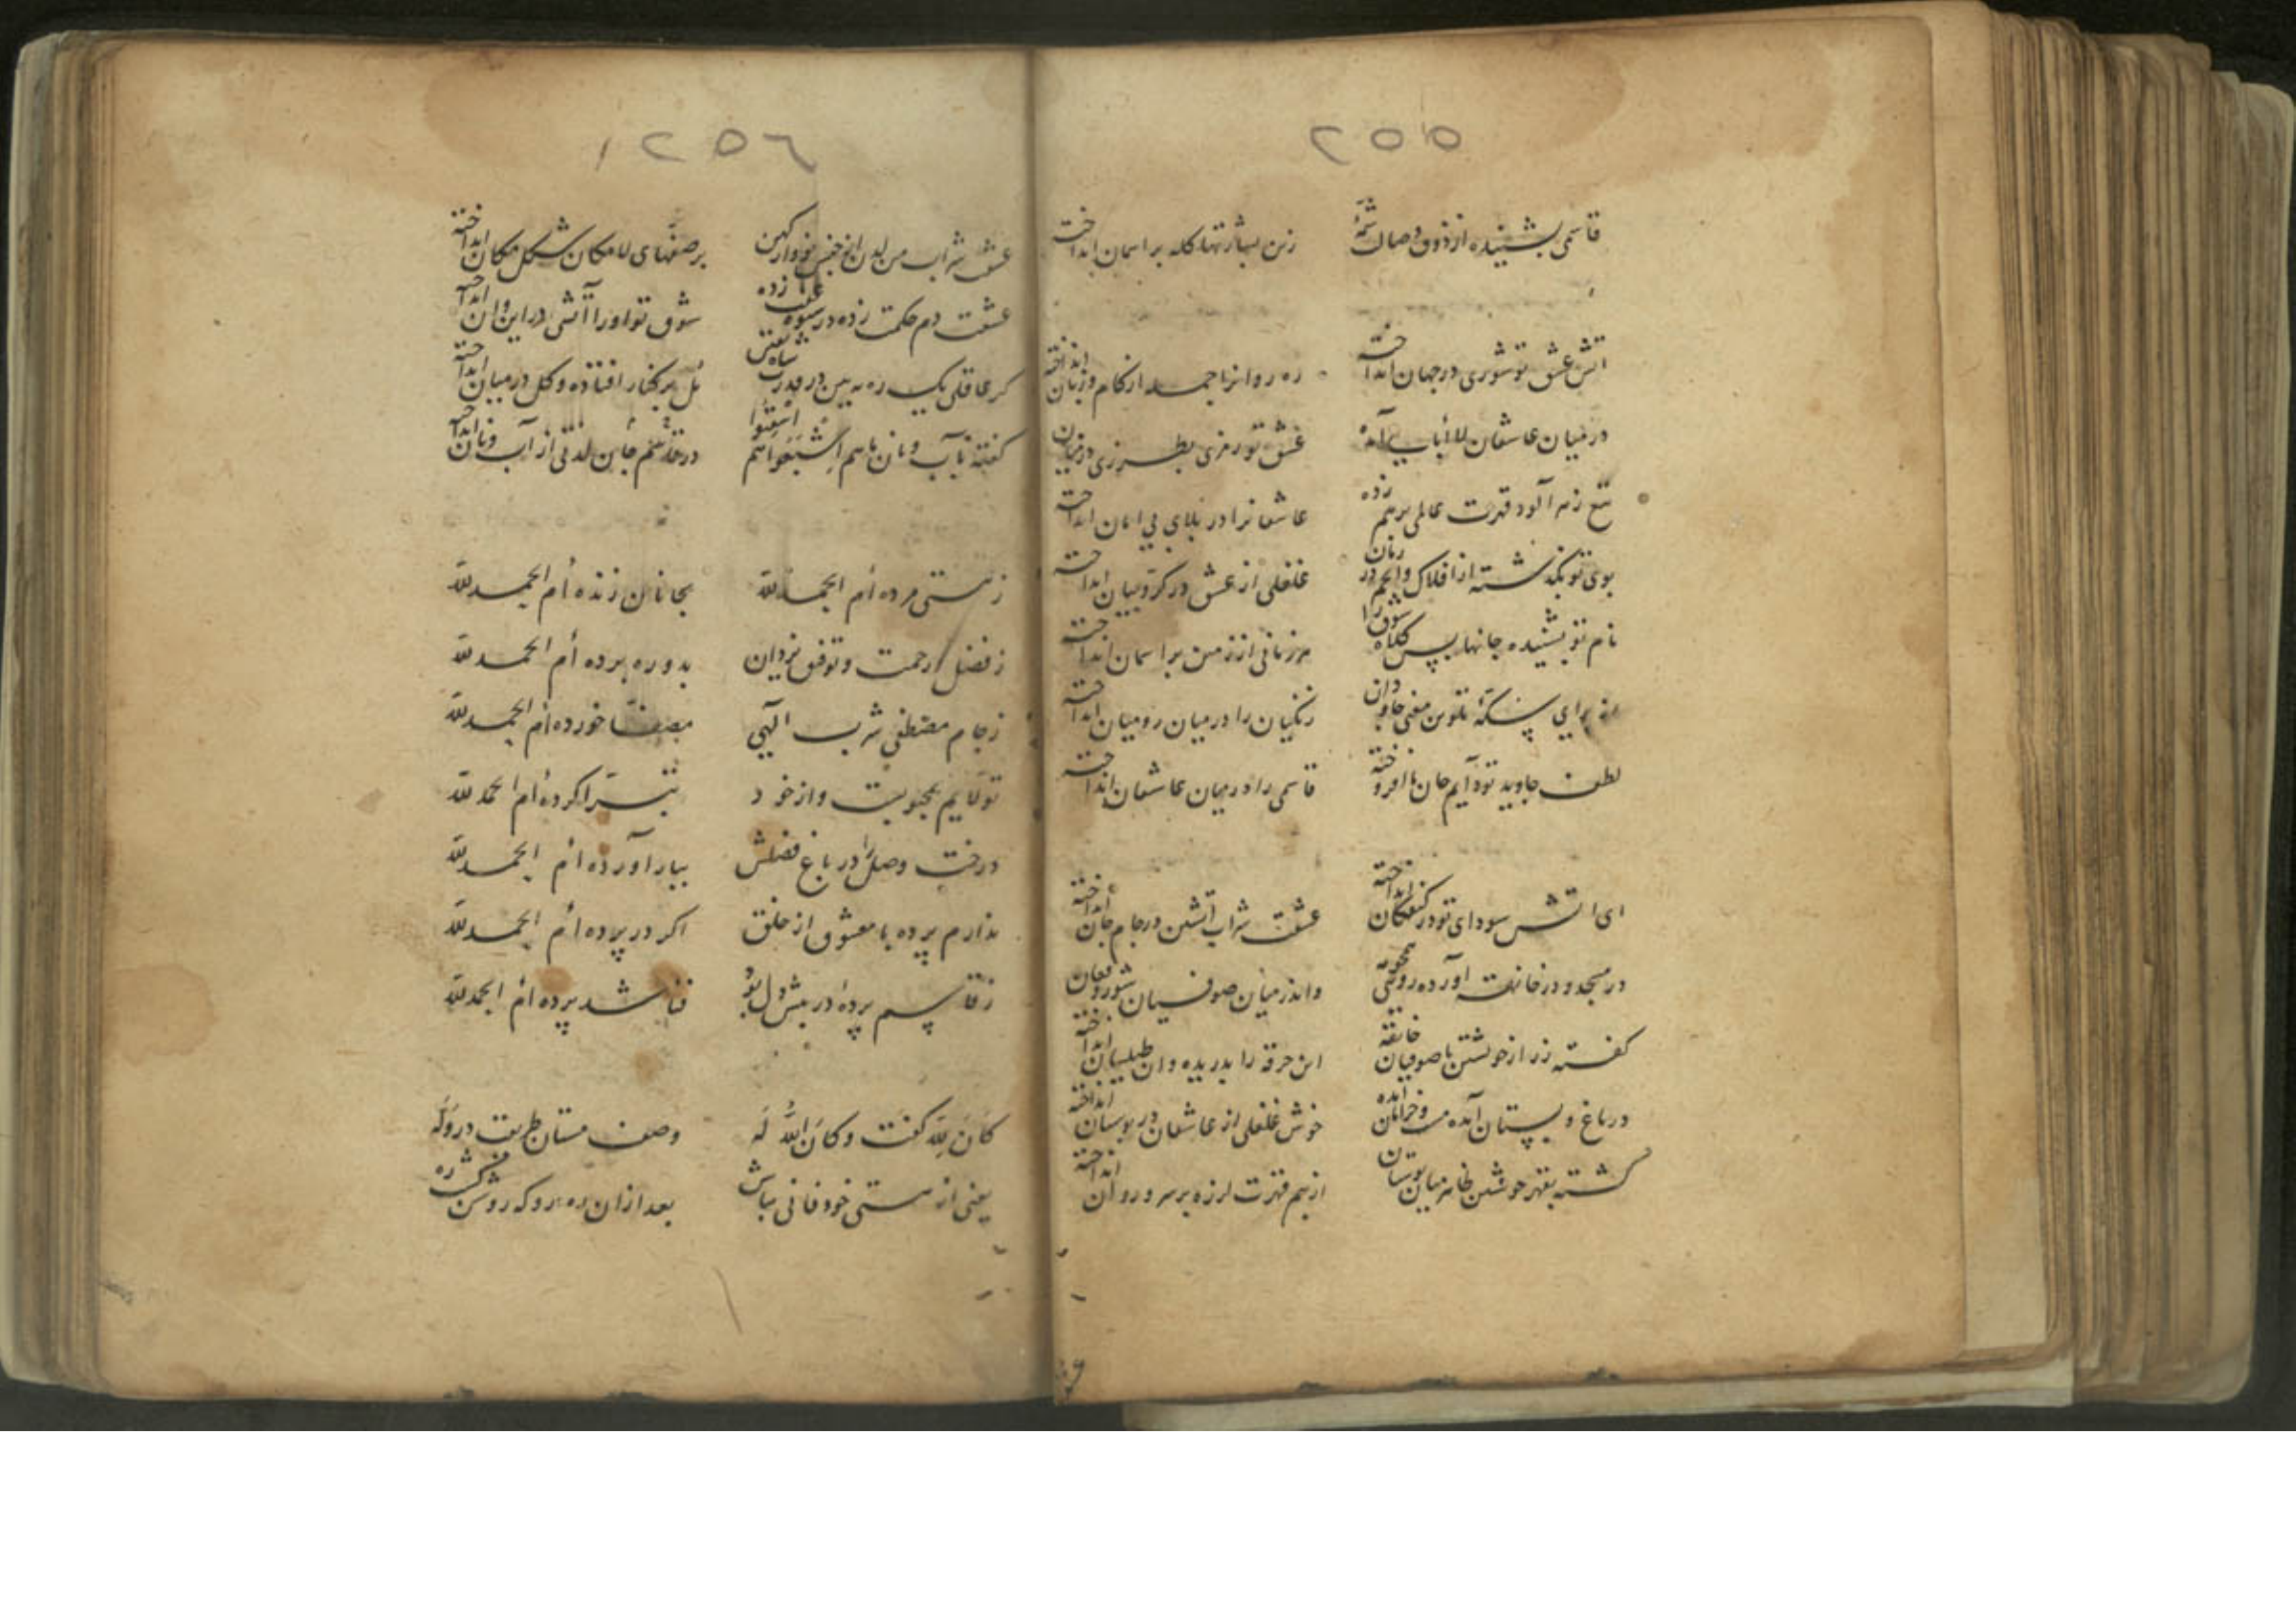 ٢٥٥
قاسمی بشنیده از ذوق وصالت شمّهٔ
زین بشارتها کله بر اسمان انداخت
اتش عشق تو شوری در جهان انداخته
ره روانرا جمله از کام و زبان انداخته
در میان عاشقان لاابالی آمده
عشق تو رمزی بطرزی در میان
تیغ زهر آلود قهرت عالمی برهم زده
عاشقانرا در بلای بی امان انداخته
بوی تو بگذشته از افلاک و انجم در زمان
غلغلی از عشق در کرّوبیان انداخته
نام تو بشنیده جانها پس کلاه شوق را
هر زمانی از زمین بر اسمان انداخته
از برای سکهٔ تلوین معنی جاودان
زنکیان را در میان رومیان انداخته
لطف جاوید تو دایم جان ما افروخته
قاسمی را در میان عاشقان انداخته
ای اتش سودای تو در کنفکان انداخته
عشقت شراب آتشین در جام جان انداخته
در مسجد و در خانقه آورده روی
واندر میان صوفیان شور و فغان
کفته رز از خویشتن با صوفیان خانقه
این خرقه را بدریده وان طیلسان انداخته
در باغ و بستان آمده مست و خرامان آمده
خوش غلغلی از عاشقان در بوستان انداخته
کشته بقهر خویشتن ظاهر میان بوستان
از بیم قهرت لرزه بر سرو روان انداخته
٢٥٦
عشق شراب من لدن
بر صفهای لامکان شکل مکان انداخته
عشقت دم حکمت زده در شیوه عفت زده
شوق تو اورا آتشی در این و ان انداخته
کر عاقلی یک ره ببین در قدرت شاه
مل بر کنار افتاده و کل در میان انداخته
کفته بآب و نان
در قاسم جان لذتی از آب و نان انداخته
زهستی مرده أم الحمد لله
بجانان زنده أم الحمد لله
ز فضل و رحمت و توفیق یزدان
بدو ره برده أم الحمد لله
زجام مصطفی شرب الهی
مصفّا خورده أم الحمد لله
تولّایم بمحبوبست و از خود
تبرّا کرده أم الحمد لله
درخت وصل را در باغ فضلش
ببار آورده أم الحمد لله
ندارم پرده با معشوق از خلق
اکر در پرده أم الحمد لله
زقاسم پردهٔ در پیش دل بود
فنا شد پرده أم الحمد لله
کان لله کفت و کان الله له
وصف مستان طریقت در وله
یعنی از هستی خود فانی بباش
بعد ازان ره رو که روشن کشت ره